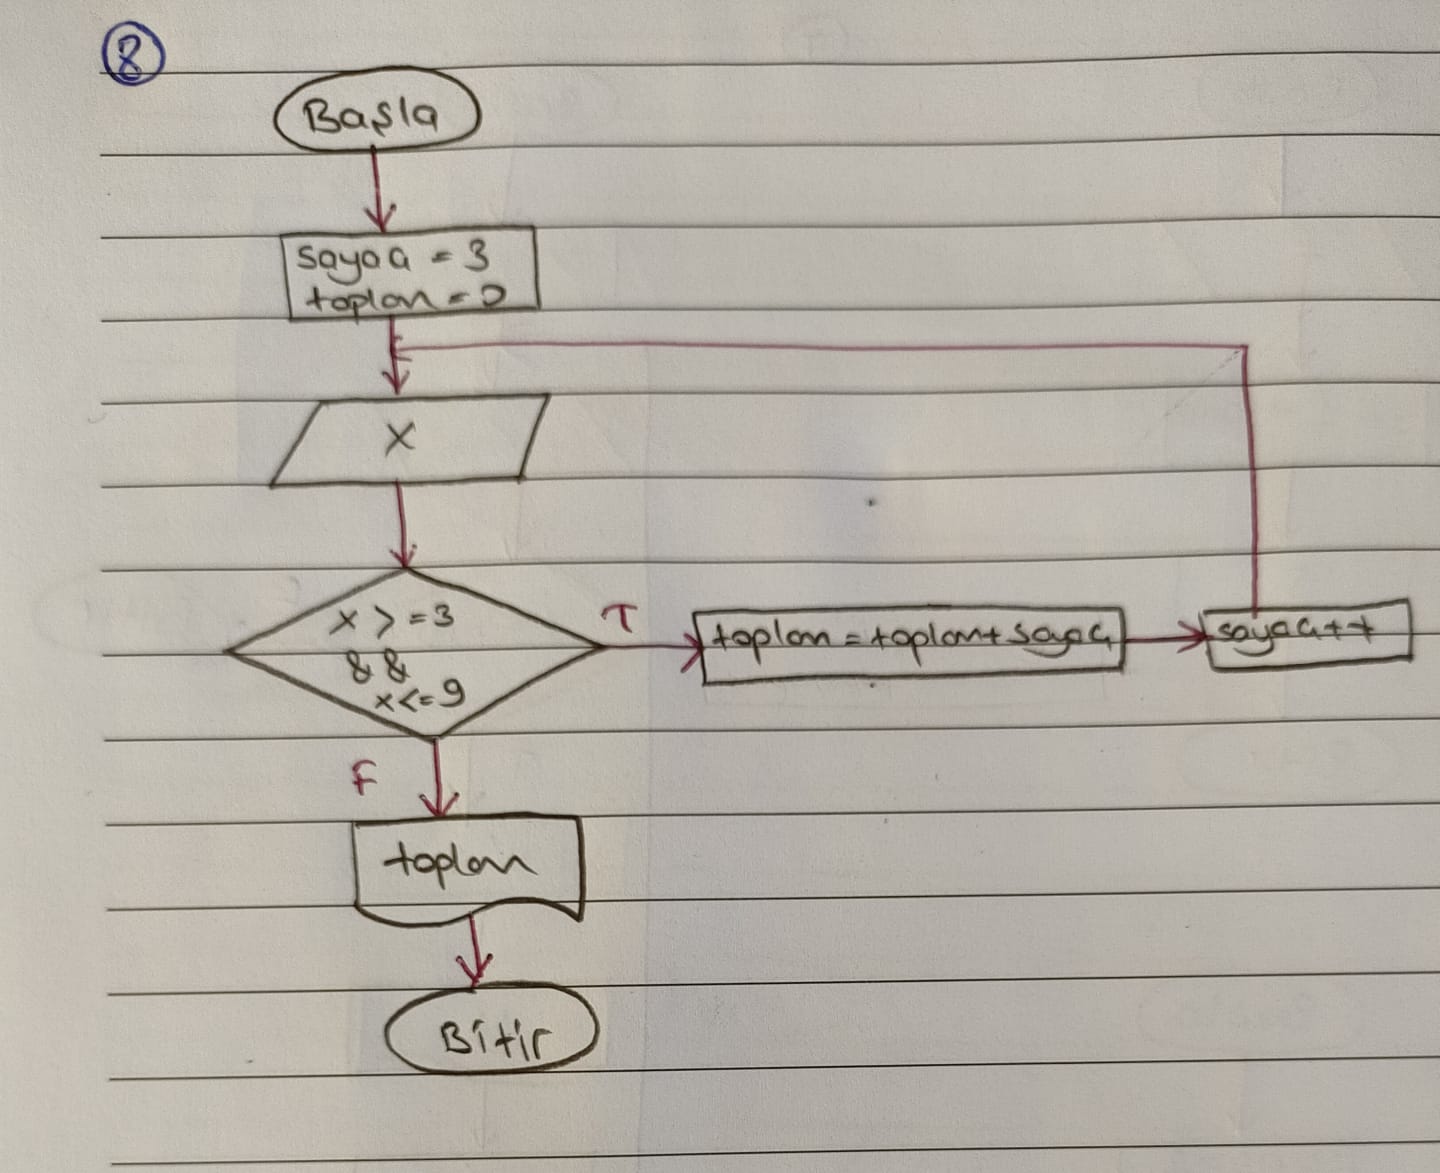 8
Başla
sayaç = 3
toplam = 0
X
x >= 3
&&
x <= 9
T
toplam = toplam + sayaç
sayaç++
F
toplam
Bitir